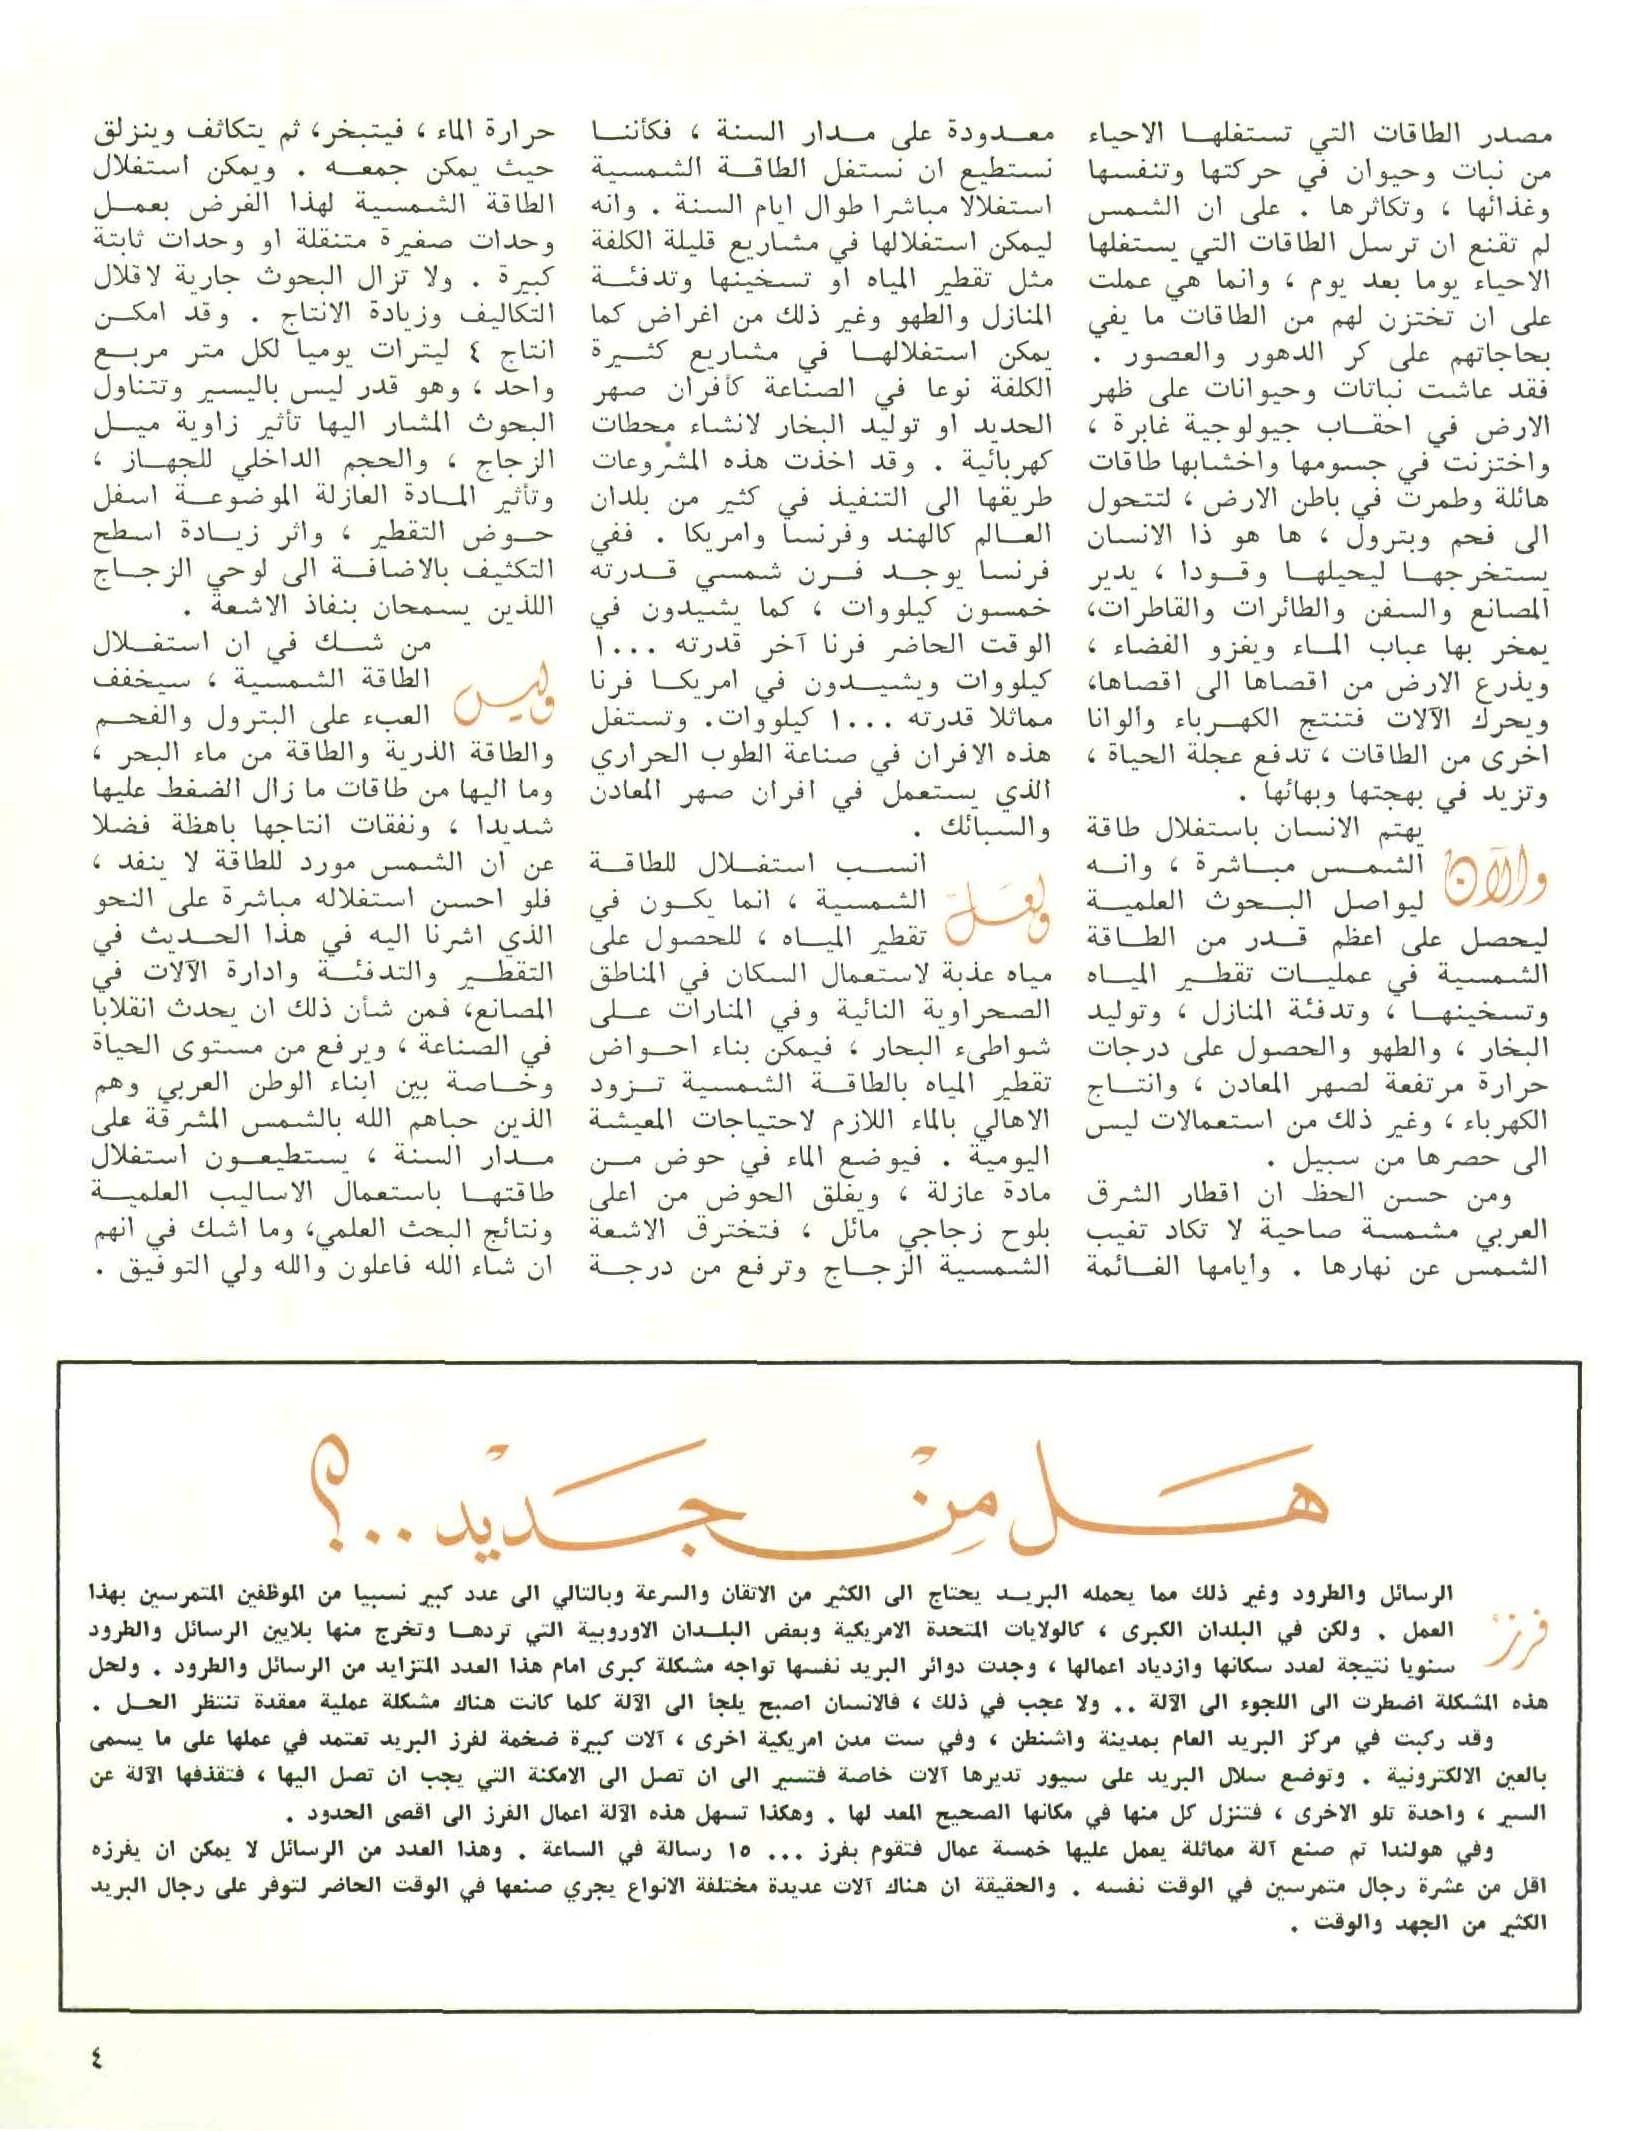 مصدر الطاقات التي تستغلهـا الاحياء
من نبات وحيوان في حركتها وتنفسها
وغذائها ، وتكاثرها . على ان الشمس
لم تقنع ان ترسل الطاقات التي يستغلها
الاحياء يوما بعد يوم ، وانما هي عملت
على ان تختزن لهم من الطاقات ما يفي
بحاجاتهم على كر الدهور والعصور .
فقد عاشت نباتات وحيوانات على ظهر
الارض في احقـاب جيولوجية غابرة ،
واختزنت في جسومها واخشابها طاقات
هائلة وطمرت في باطن الارض ، لتتحول
الى فحم وبترول ، ها هو ذا الانسان
يستخرجهـا ليحيلهـا وقـودا ، يدير
المصانع والسفن والطائرات والقاطرات،
يمخر بها عباب المـاء ويغزو الفضاء ،
ويذرع الارض من اقصاها الى اقصاها،
ويحرك الآلات فتنتج الكهـرباء والوانا
اخرى من الطاقات ، تدفع عجلة الحياة ،
وتزيد في بهجتها وبهائها .
والآن يهتم الانسان باستغلال طاقة
الشمـس مبـاشرة ، وانـه
ليواصل البـحوث العلميـة
ليحصل على اعظم قـدر من الطـاقة
الشمسية في عمليـات تقطـير الميـاه
وتسخينهـا ، وتدفئة المنازل ، وتوليد
البخار ، والطهو والحصول على درجات
حرارة مرتفعة لصهر المعادن ، وانتـاج
الكهرباء ، وغير ذلك من استعمالات ليس
الى حصرها من سبيل .
ومن حسـن الحظ ان اقطار الشرق
العربي مشمسـة صاحية لا تكاد تغيب
الشمس عن نهارها . وايامها الغـائمة
معـدودة على مـدار السنة ، فكأننـا
نستطيع ان نستغل الطاقـة الشمسية
استغلالا مباشرا طوال ايام السنة . وانه
ليمكن استغلالها في مشاريع قليلة الكلفة
مثل تقطير المياه او تسخينها وتدفئـة
المنازل والطهو وغير ذلك من اغراض كما
يمكن استغلالهـا في مشاريع كثـيرة
الكلفة نوعا في الصناعة كأفران صهر
الحديد او توليد البخار لانشاء محطات
كهربائية . وقد اخذت هذه المشروعات
طريقها الى التنفيذ في كثير من بلدان
العـالم كالهند وفرنسـا وامريكا . ففي
فرنسـا يوجـد فـرن شمسي قـدرته
خمسون كيلووات ، كما يشيدون في
الوقت الحاضر فرنا آخر قدرته ١٠٠٠
كيلووات ويشيـدون في امريكـا فرنا
مماثلا قدرته ١٠٠٠ كيلووات. وتستغل
هذه الافران في صناعة الطوب الحراري
الذي يستعمل في افران صهر المعادن
والسبائك .
ولعل انسـب استغـلال للطاقـة
الشمسية ، انما يكـون في
تقطير الميـاه ، للحصول على
مياه عذبة لاستعمال السكان في المناطق
الصحراوية النائية وفي المنارات علـى
شواطىء البحار ، فيمكن بناء احـواض
تقطير المياه بالطاقـة الشمسية تـزود
الاهالي بالماء اللازم لاحتياجات المعيشة
اليومية . فيوضع الماء في حوض مـن
مادة عازلة ، ويغلق الحوض من اعلى
بلوح زجاجي مائل ، فتخترق الاشعة
الشمسية الزجـاج وترفع من درجـة
حرارة الماء ، فيتبخر، ثم يتكاثف وينزلق
حيث يمكن جمعـه . ويمكن استغلال
الطاقة الشمسية لهذا الغرض بعمـل
وحدات صغيرة متنقلة او وحدات ثابتة
كبيرة . ولا تزال البحوث جارية لاقلال
التكاليف وزيادة الانتاج . وقد امكـن
انتاج ٤ ليترات يوميا لكل متر مربـع
واحد ، وهو قدر ليس باليسير وتتناول
البحوث المشار اليها تأثير زاوية ميـل
الزجاج ، والحجم الداخلي للجهـاز ،
وتأثير المـادة العازلة الموضوعـة اسفل
حـوض التقطير ، واثر زيـادة اسطح
التكثيف بالاضافـة الى لوحي الزجـاج
اللذين يسمحان بنفاذ الاشعة .
وليس من شـك في ان استغـلال
الطاقة الشمسية ، سيخفف
العبء على البترول والفحـم
والطاقة الذرية والطاقة من ماء البحر ،
وما اليها من طاقات ما زال الضغط عليها
شديدا ، ونفقات انتاجها باهظة فضلا
عن ان الشمس مورد للطاقة لا ينفد ،
فلو احسن استغلاله مباشرة على النحو
الذي اشرنا اليه في هذا الحـديث في
التقطـير والتدفئـة وادارة الآلات في
المصانع، فمن شأن ذلك ان يحدث انقلابا
في الصناعة ، ويرفع من مستوى الحياة
وخـاصة بين ابناء الوطن العربي وهم
الذين حباهم الله بالشمس المشرقة على
مـدار السنة ، يستطيعـون استغلال
طاقتهـا باستعمال الاساليب العلميـة
ونتائج البحث العلمي، وما اشك في انهم
ان شاء الله فاعلون والله ولي التوفيق .
هَـل مِنْ جَـديْد ..؟
فرز الرسائل والطرود وغير ذلك مما يحمله البريـد يحتاج الى الكثير من الاتقان والسرعة وبالتالي الى عدد كبير نسبيا من الموظفين المتمرسين بهذا
العمل . ولكن في البلدان الكبرى ، كالولايات المتحدة الامريكية وبعض البلـدان الاوروبية التي تردهـا وتخرج منها بلايين الرسائل والطرود
سنويا نتيجة لعدد سكانها وازدياد اعمالها ، وجدت دوائر البريد نفسها تواجه مشكلة كبرى امام هذا العدد المتزايد من الرسائل والطرود . ولحل
هذه المشكلة اضطرت الى اللجوء الى الآلة .. ولا عجب في ذلك ، فالانسان اصبح يلجأ الى الآلة كلما كانت هناك مشكلة عملية معقدة تنتظر الحـل .
وقد ركبت في مركز البريد العام بمدينة واشنطن ، وفي ست مدن امريكية اخرى ، آلات كبيرة ضخمة لفرز البريد تعتمد في عملها على ما يسمى
بالعين الالكترونية . وتوضع سلال البريد على سيور تديرها آلات خاصة فتسير الى ان تصل الى الامكنة التي يجب ان تصل اليها ، فتقذفها الآلة عن
السير ، واحدة تلو الاخرى ، فتنزل كل منها في مكانها الصحيح المعد لها . وهكذا تسهل هذه الآلة اعمال الفرز الى اقصى الحدود .
وفي هولندا تم صنع آلة مماثلة يعمل عليها خمسة عمال فتقوم بفرز ١٥٠٠٠ رسالة في الساعة . وهذا العدد من الرسائل لا يمكن ان يفرزه
اقل من عشرة رجال متمرسين في الوقت نفسه . والحقيقة ان هناك آلات عديدة مختلفة الانواع يجري صنعها في الوقت الحاضر لتوفر على رجال البريد
الكثير من الجهد والوقت .
٤